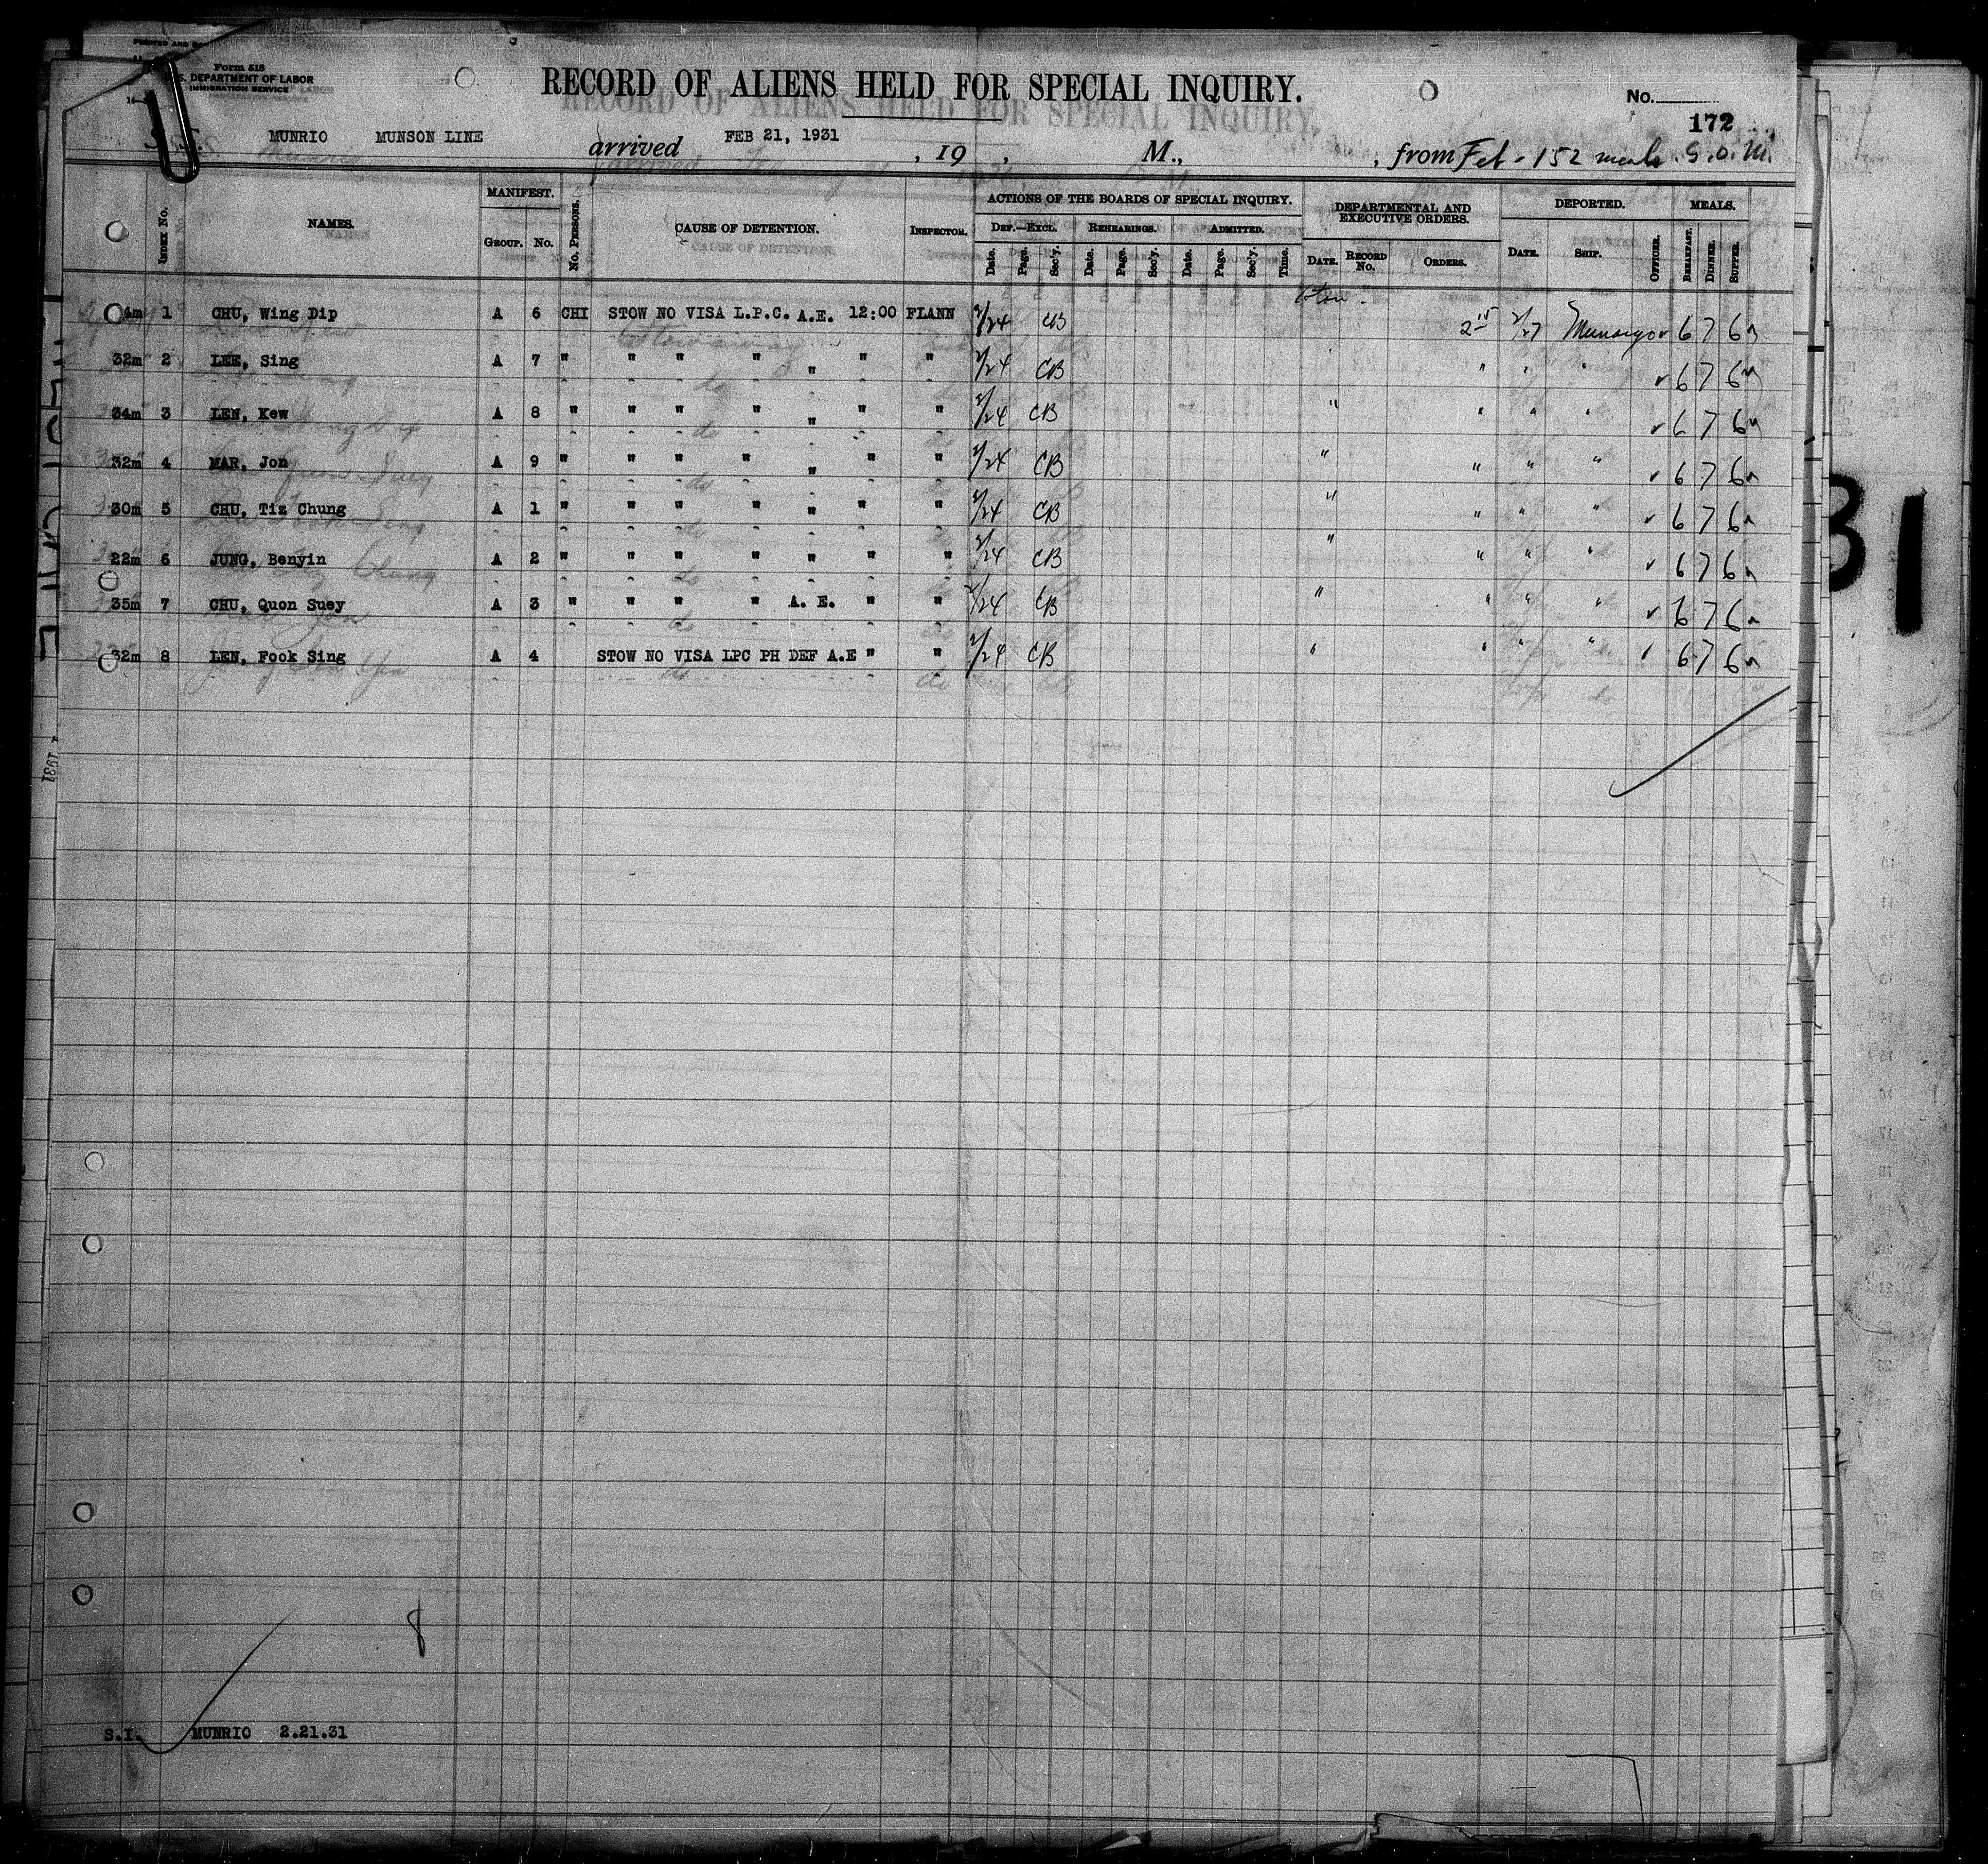 Form 518
S. DEPARTMENT OF LABOR
IMMIGRATION SERVICE
RECORD OF ALIENS HELD FOR SPECIAL INQUIRY.
No.
172
MUNRIO MUNSON LINE arrived FEB 21, 1931 , 19 , M., , from Feb - 152 meals S.O.M.
INDEX No. NAMES. MANIFEST. GROUP. No. No. PERSONS. CAUSE OF DETENTION. INSPECTOR. ACTIONS OF THE BOARDS OF SPECIAL INQUIRY. DEPARTMENTAL AND EXECUTIVE ORDERS. DEPORTED. MEALS.
DEF.—EXCL. REHEARINGS. ADMITTED.
Date. Page. Sec'y. Date. Page. Sec'y. Date. Page. Sec'y. Time. DATE. RECORD No. ORDERS. DATE. SHIP. OFFICER. BREAKFAST. DINNER. SUPPER.
4m 1 CHU, Wing Dip A 6 CHI STOW NO VISA L.P.C. A.E. 12:00 FLANN 2/24 CB 2 15 2/27 Munargo 6 7 6
32m 2 LEE, Sing A 7 " " " " " " " 2/24 CB " " " 6 7 6
34m 3 LEN, Kew A 8 " " " " " " " 2/24 CB " " " " 6 7 6
32m 4 MAR, Jon A 9 " " " " " " " 2/24 CB " " " " 6 7 6
30m 5 CHU, Tiz Chung A 1 " " " " " " " 2/24 CB " " " " 6 7 6
22m 6 JUNG, Benyin A 2 " " " " " " " 2/24 CB " " " " 6 7 6
35m 7 CHU, Quon Suey A 3 " " " " A. E. " " 2/24 CB " " " " 6 7 6
32m 8 LEN, Fook Sing A 4 STOW NO VISA LPC PH DEF A.E " " 2/24 CB " " " " 6 7 6
31
1931
8
S.I. MUNRIO 2.21.31